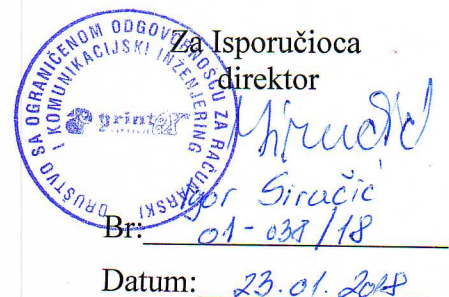 Za Isporučioca
direktor
DRUŠTVO SA OGRANIČENOM ODGOVORNOSTU ZA RAČUNARSKI
I KOMUNIKACIJSKI INŽENJERING
Sprinter
Igor Siručić
Br: 01-038/18
Datum: 23.01.2018